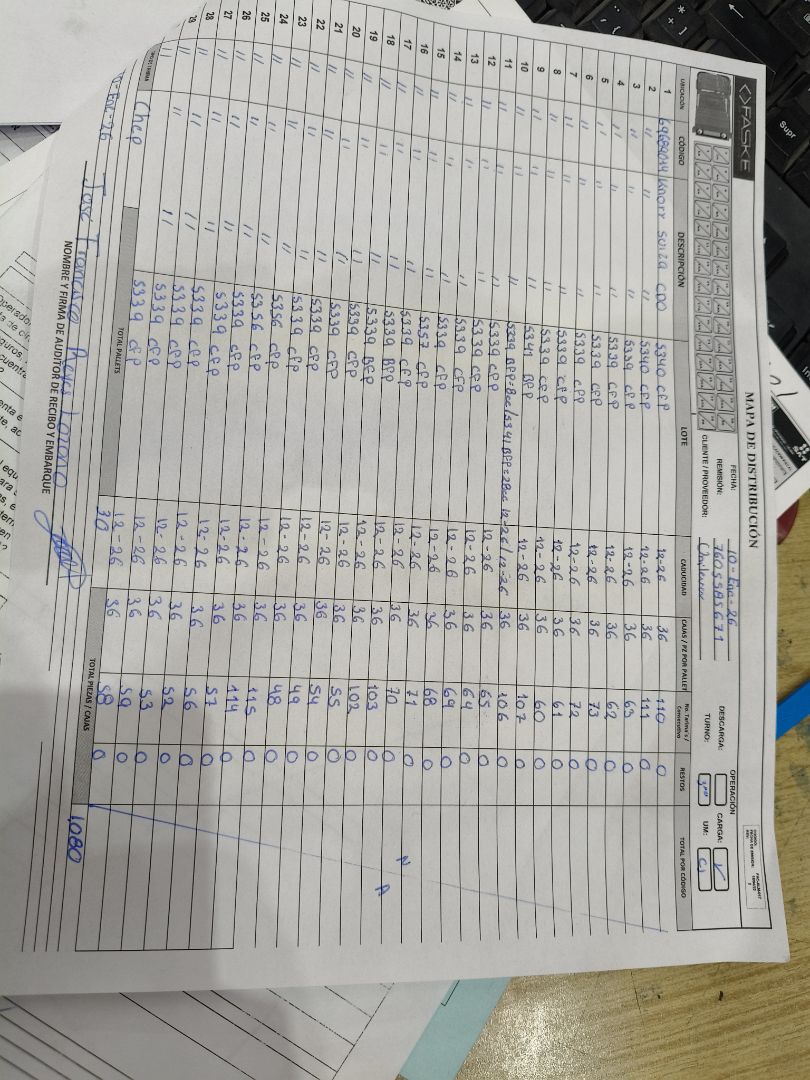 FASKE
MAPA DE DISTRIBUCIÓN
FECHA: 10-Ene-26
REMISIÓN: 7605585671
CLIENTE / PROVEEDOR:
OPERACIÓN
DESCARGA: CARGA: ✓
TURNO: 3ro UM: CJ
UBICACIÓN CÓDIGO DESCRIPCIÓN LOTE CADUCIDAD CAJAS / PZ POR PALLET No. Tarima's / Consecutivo RESTOS TOTAL POR CÓDIGO
1 69689014 Knorr Suiza CDO 5340 CFP 12-26 36 110 0
2 " " 5340 CFP 12-26 36 111 0
3 " " 5339 CFP 12-26 36 63 0
4 " " 5339 CFP 12-26 36 62 0
5 " " 5339 CFP 12-26 36 73 0
6 " " 5339 CFP 12-26 36 72 0
7 " " 5339 CFP 12-26 36 61 0
8 " " 5339 CFP 12-26 36 60 0
9 " " 5339 CFP 12-26 36 107 0
10 " " 5341 BFP 12-26 36 106 0
11 " " 5339 BFP=8cc/5341 BFP=28cc 12-26/12-26 36 65 0
12 " " 5339 CFP 12-26 36 64 0
13 " " 5339 CFP 12-26 36 69 0
14 " " 5339 CFP 12-26 36 68 0
15 " " 5339 CFP 12-26 36 71 0
16 " " 5357 CFP 12-26 36 70 0
17 " " 5339 CFP 12-26 36 103 0
18 " " 5339 BFP 12-26 36 102 0
19 " " 5339 BFP 12-26 36 55 0
20 " " 5339 CFP 12-26 36 54 0
21 " " 5339 CFP 12-26 36 49 0
22 " " 5339 CFP 12-26 36 48 0
23 " " 5339 CFP 12-26 36 115 0
24 " " 5356 CFP 12-26 36 114 0
25 " " 5356 CFP 12-26 36 57 0
26 " " 5339 CFP 12-26 36 56 0
27 " " 5339 CFP 12-26 36 52 0
28 " " 5339 CFP 12-26 36 53 0
29 " " 5339 CFP 12-26 36 59 0
" " 5339 CFP 12-26 36 58 0
N A
Chep TOTAL PALLETS 30 TOTAL PIEZAS / CAJAS 1,080
10-Ene-26
Jose Francisco Reyes Lozano
NOMBRE Y FIRMA DE AUDITOR DE RECIBO Y EMBARQUE
Supr